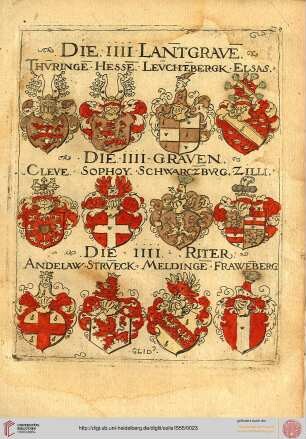 DIE · IIII · LANTGRAVE.
THVRINGE · HESSE · LEVCHTEBERGK · ELSAS.
DIE · IIII · GRAVEN.
CLEVE · SOPHOY · SCHWARCZBVRG · ZILLI.
DIE · IIII · RITER.
ANDELAW · STRVECK · MELDINGE · FRAWEBERG
http://digi.ub.uni-heidelberg.de/diglit/salis1555/0023